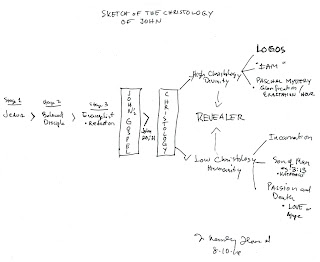 SKETCH OF THE CHRISTOLOGY
OF JOHN
LOGOS
"I AM"
PASCHAL MYSTERY
Glorification/
EXALTATION HOUR
High Christology
Divinity
Stage 1
Jesus
Stage 2
Beloved
Disciple
Stage 3
Evangelist
Redactor
JOHN'S GOSPEL
John
20/31
CHRISTOLOGY
REVEALER
Low Christology
Humanity
Incarnation
Son of Man
3:13
PASSION and
Death
LOVE or
Agape